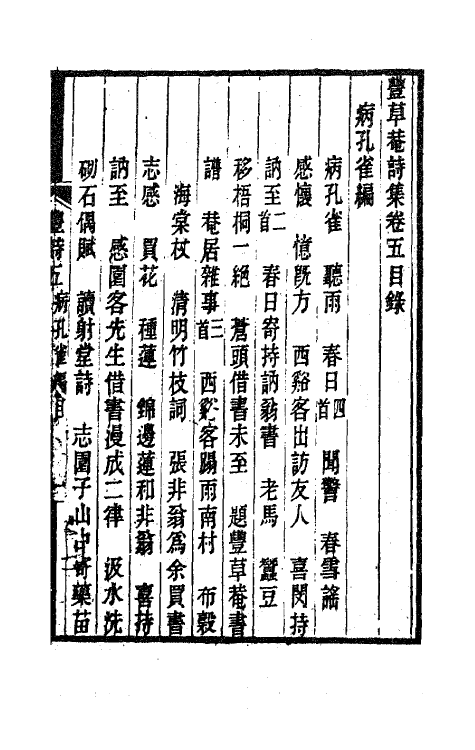 豐草菴詩集卷五目錄
病孔雀編
病孔雀　聽雨　春日四首　聞警　春雪謠
感懷　憶旣方　西谿客出訪友人　喜閔持
訥至二首　春日寄持訥翁書　老馬　蠶豆
移梧桐一絕　蒼頭借書未至　題豐草菴書
譜　菴居雜事三首　西谿客蹋雨南村　布穀
海棠杖　淸明竹枝詞　張非翁爲余買書
志感　買花　種蓮　錦邊蓮和非翁　喜持
訥至　感圍客先生借書漫成二律　汲水洗
砌石偶賦　讀射堂詩　志圍子山中寄藥苗
豐詩五　病孔雀編目